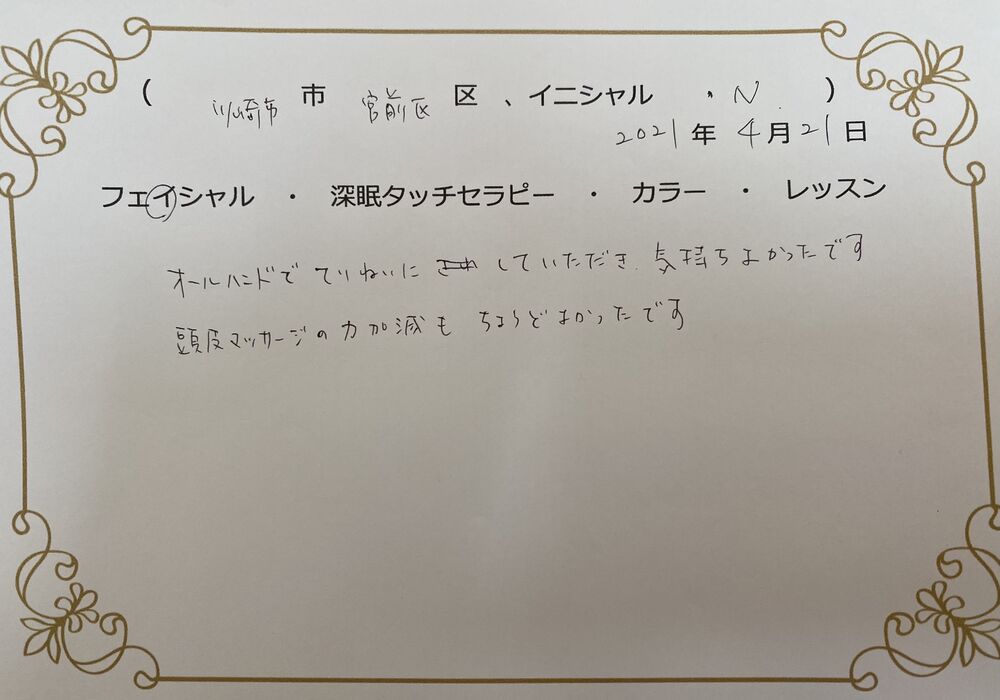 ( 川崎市 市 宮前区 区 、イニシャル ・N. )
2021 年 4 月 21 日
フェイシャル ・ 深眠タッチセラピー ・ カラー ・ レッスン
オールハンドで ていねいに していただき、気持ちよかったです
頭皮マッサージの力加減も ちょうどよかったです